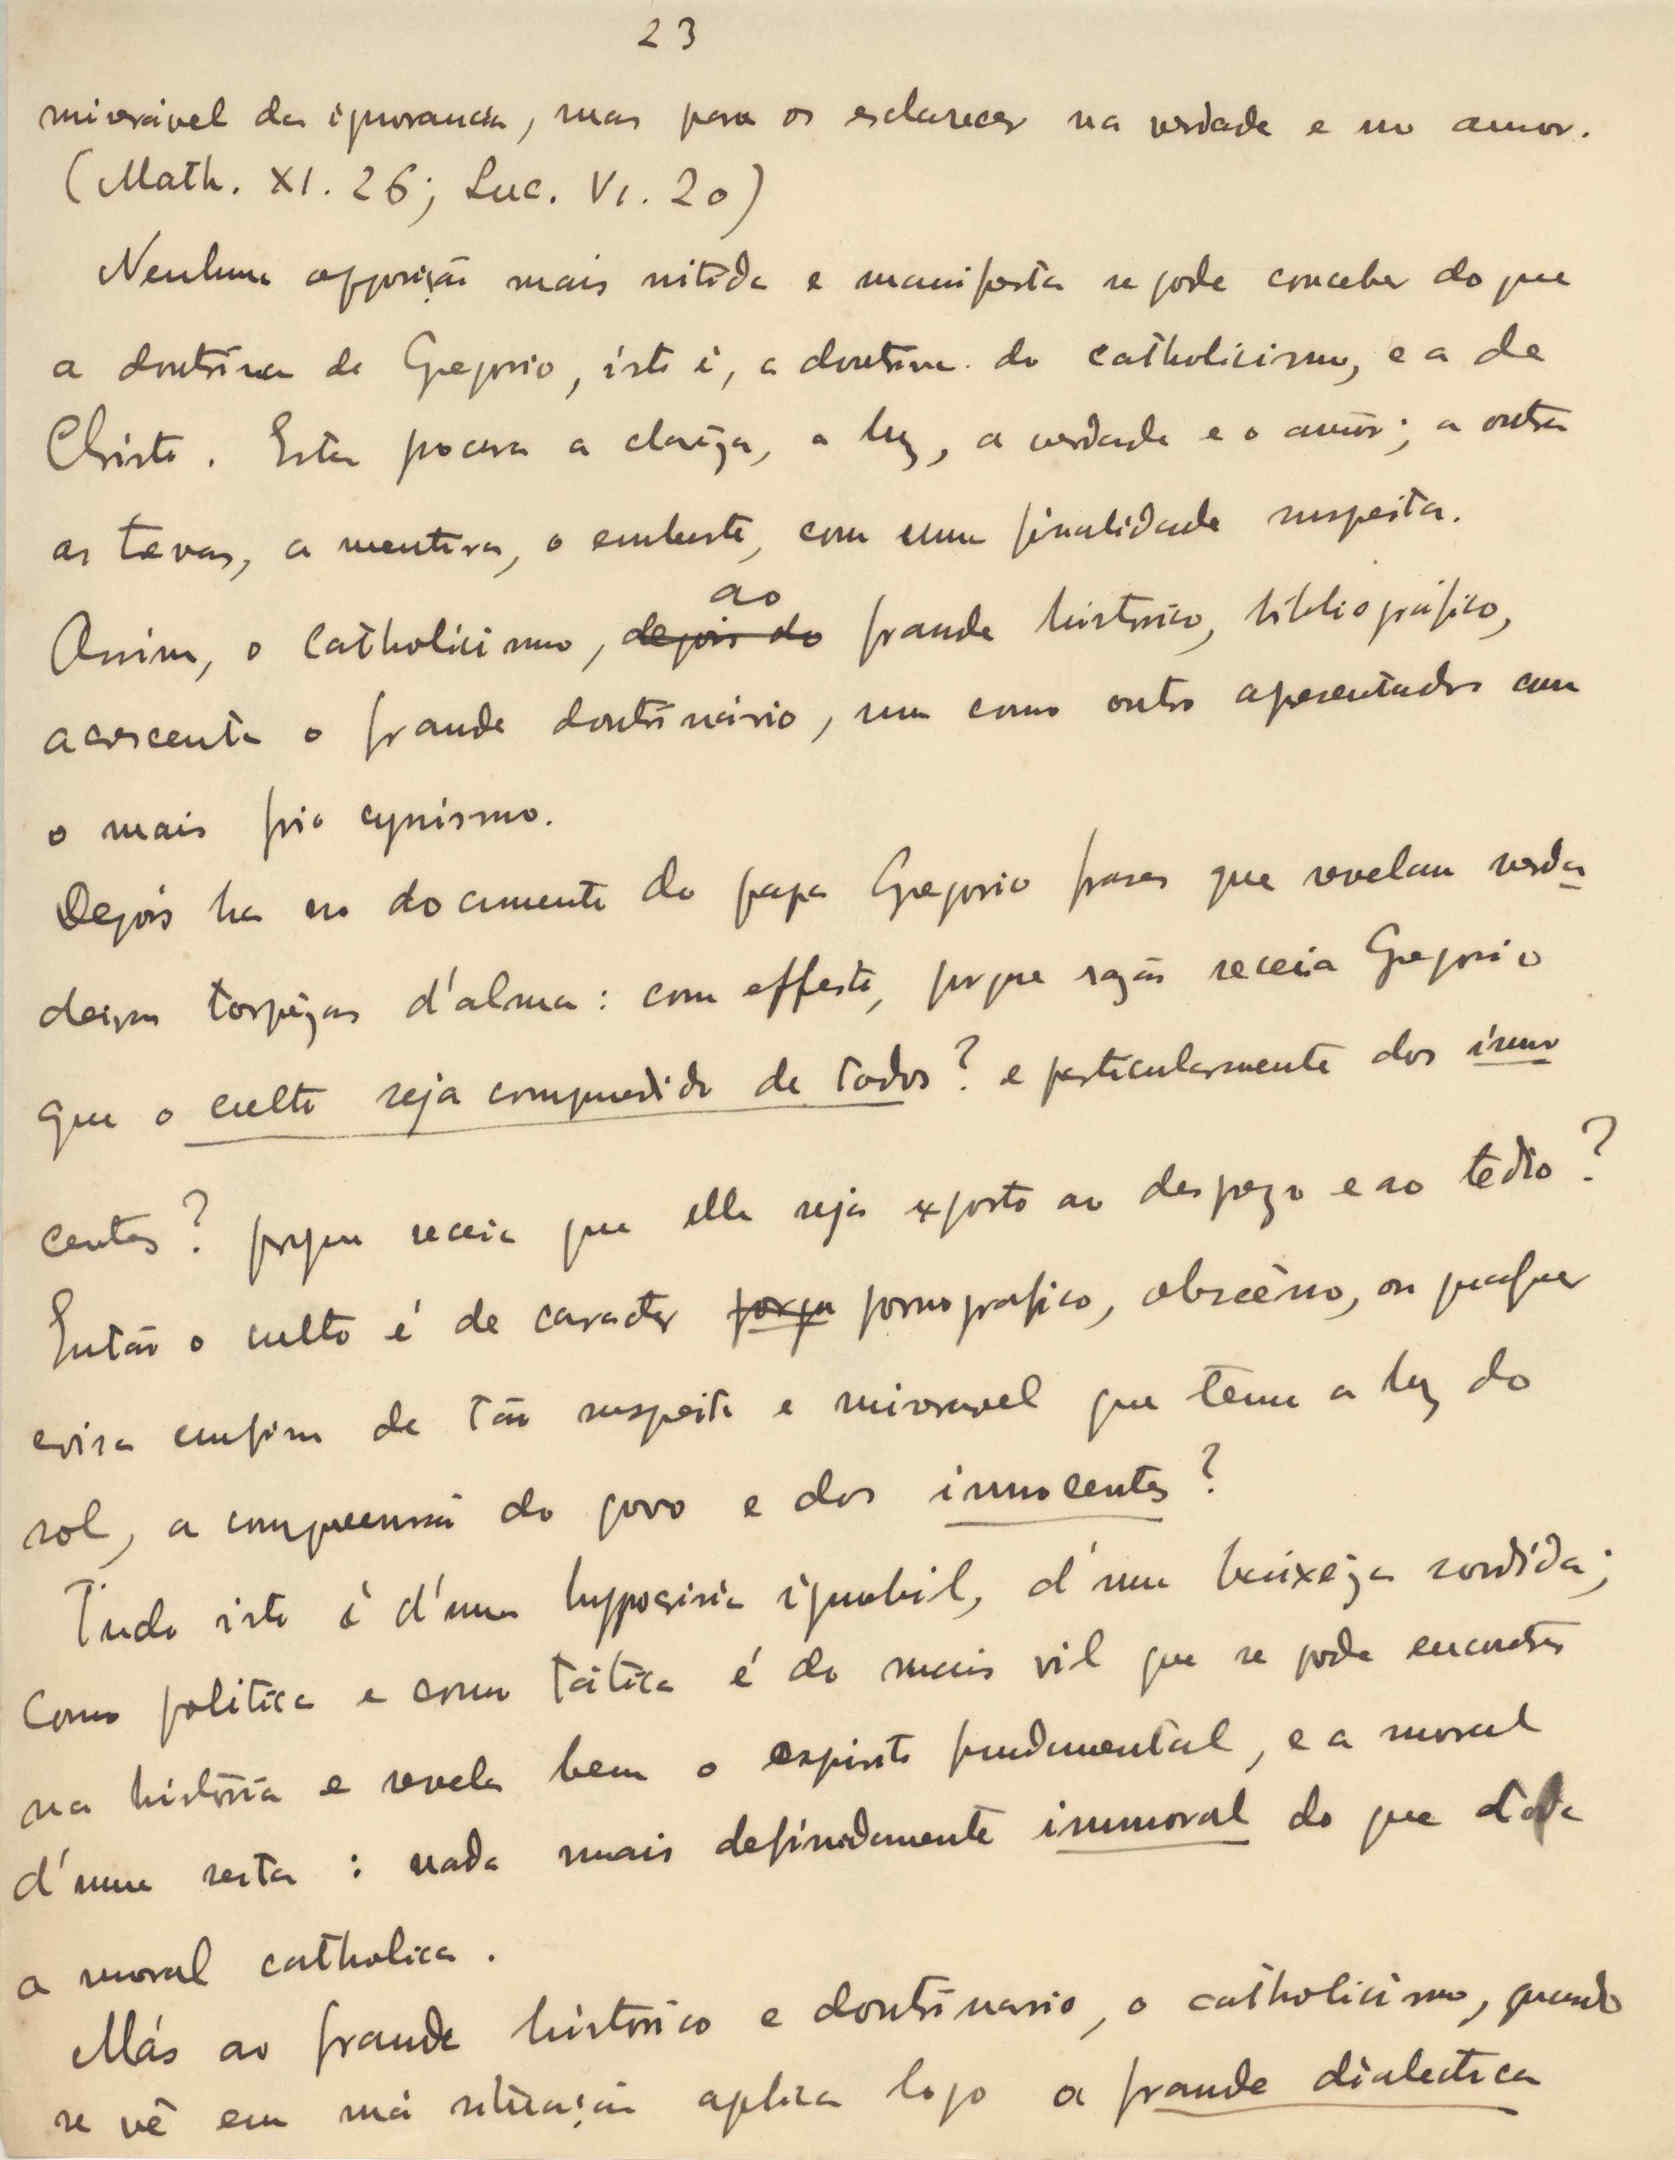 23
miseravel da ignorancia, mas para os esclarecer na verdade e no amor.
(Math. XI. 26; Luc. VI. 20)
Nenhuma opposição mais nitida e manifesta se pode conceber do que
a doutrina de Gregorio, isto é, a doutrina do catholicismo, e a de
Christo. Esta procura a clarêza, a luz, a verdade e o amôr; a outra
as trevas, a mentira, o embuste, com uma finalidade suspeita.
Assim, o catholicismo, ~~depois do~~ ao fraude histórico, bibliográfico,
acrescenta o fraude doutrinário, um como outro apresentados com
o mais frio cynismo.
Depois ha no documento do papa Gregorio frases que revelam verda
deiras torpêzas d'alma: com effeito, porque razão receia Gregorio
que o culto seja comprendido de todos? e particularmente dos inno
centes? porque receia que elle seja exposto ao desprezo e ao tédio?
Então o culto é de caracter pornografico, obscêno, ou qualquer
coisa emfim de tão suspeito e miseravel que tema a luz do
sol, a comprensão do povo e dos innocentes?
Tudo isto é d'uma hyppocrisia ignobil, d'uma baixêza sordida;
como politica e como tática é do mais vil que se pode encontrar
na história e revela bem o espirito fundamental, e a moral
d'uma seita: nada mais definidamente immoral do que
a moral catholica.
Más ao fraude histórico e doutrinario, o catholicismo, quando
se vê em má situação aplica logo a fraude dialectica